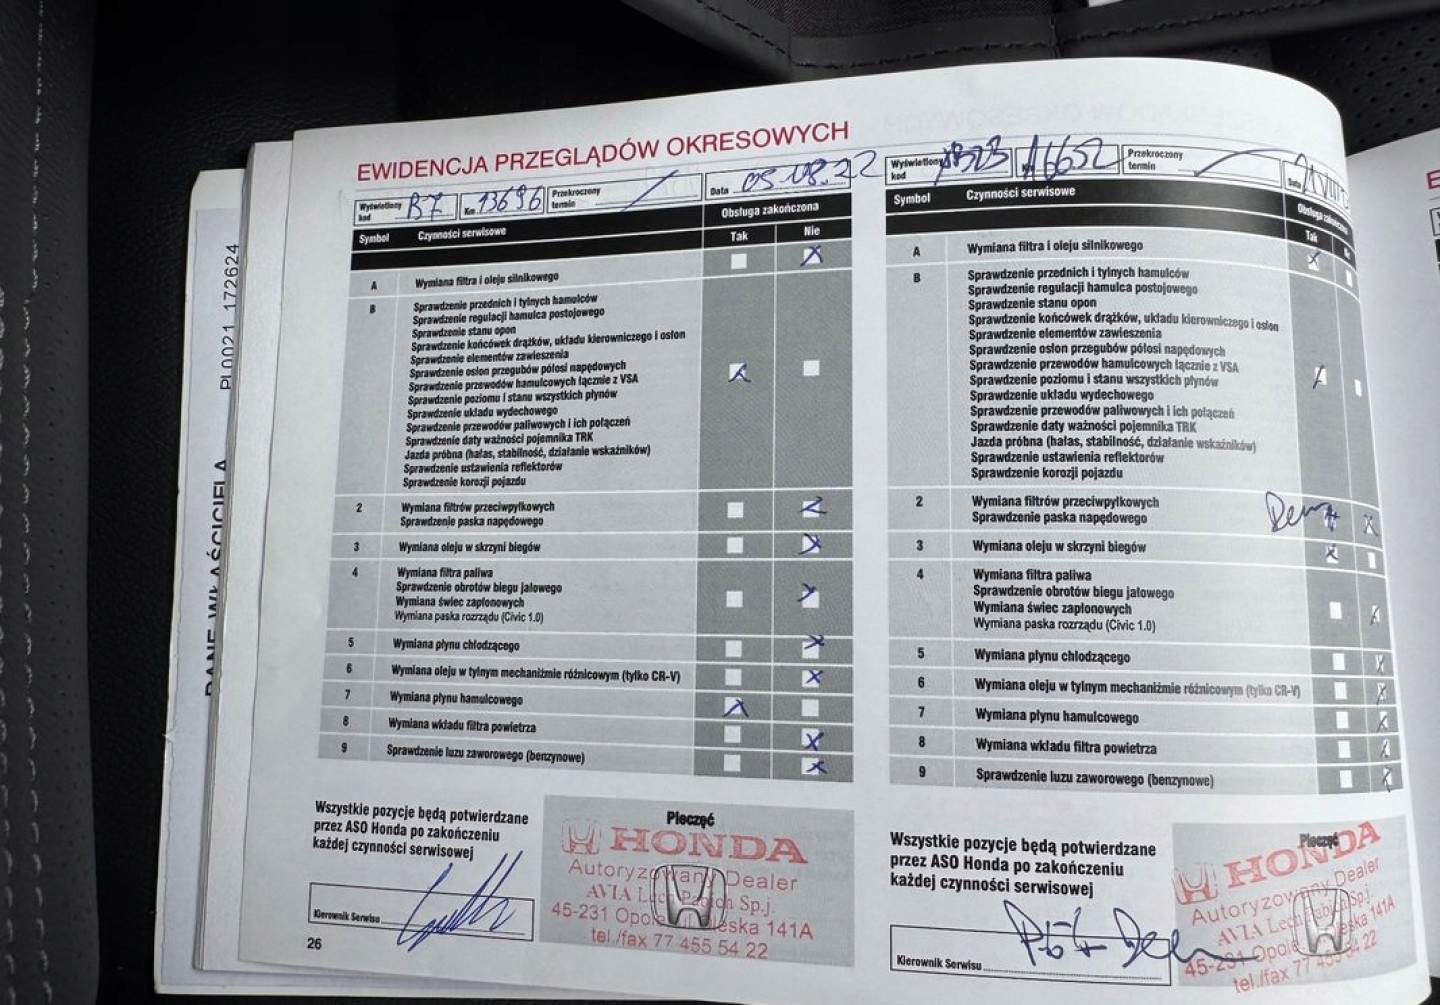 EWIDENCJA PRZEGLĄDÓW OKRESOWYCH
Wyświetlony kod B7 Km 13696 Przekroczony termin Data 05.08.22
Symbol Czynności serwisowe Obsługa zakończona
Tak Nie
A Wymiana filtra i oleju silnikowego
B Sprawdzenie przednich i tylnych hamulców
Sprawdzenie regulacji hamulca postojowego
Sprawdzenie stanu opon
Sprawdzenie końcówek drążków, układu kierowniczego i osłon
Sprawdzenie elementów zawieszenia
Sprawdzenie osłon przegubów półosi napędowych
Sprawdzenie przewodów hamulcowych łącznie z VSA
Sprawdzenie poziomu i stanu wszystkich płynów
Sprawdzenie układu wydechowego
Sprawdzenie przewodów paliwowych i ich połączeń
Sprawdzenie daty ważności pojemnika TRK
Jazda próbna (hałas, stabilność, działanie wskaźników)
Sprawdzenie ustawienia reflektorów
Sprawdzenie korozji pojazdu
2 Wymiana filtrów przeciwpyłkowych
Sprawdzenie paska napędowego
3 Wymiana oleju w skrzyni biegów
4 Wymiana filtra paliwa
Sprawdzenie obrotów biegu jałowego
Wymiana świec zapłonowych
Wymiana paska rozrządu (Civic 1.0)
5 Wymiana płynu chłodzącego
6 Wymiana oleju w tylnym mechaniźmie różnicowym (tylko CR-V)
7 Wymiana płynu hamulcowego
8 Wymiana wkładu filtra powietrza
9 Sprawdzenie luzu zaworowego (benzynowe)
Wszystkie pozycje będą potwierdzane
przez ASO Honda po zakończeniu
każdej czynności serwisowej
Kierownik Serwisu
Pieczęć
HONDA
Autoryzowany Dealer
AVIA Lech Pabich Sp.j.
45-231 Opole 141A
tel./fax 77 455 54 22
26
Wyświetlony kod Przekroczony termin Data
Symbol Czynności serwisowe Obsługa
Tak
A Wymiana filtra i oleju silnikowego
B Sprawdzenie przednich i tylnych hamulców
Sprawdzenie regulacji hamulca postojowego
Sprawdzenie stanu opon
Sprawdzenie końcówek drążków, układu kierowniczego i osłon
Sprawdzenie elementów zawieszenia
Sprawdzenie osłon przegubów półosi napędowych
Sprawdzenie przewodów hamulcowych łącznie z VSA
Sprawdzenie poziomu i stanu wszystkich płynów
Sprawdzenie układu wydechowego
Sprawdzenie przewodów paliwowych i ich połączeń
Sprawdzenie daty ważności pojemnika TRK
Jazda próbna (hałas, stabilność, działanie wskaźników)
Sprawdzenie ustawienia reflektorów
Sprawdzenie korozji pojazdu
2 Wymiana filtrów przeciwpyłkowych
Sprawdzenie paska napędowego
3 Wymiana oleju w skrzyni biegów
4 Wymiana filtra paliwa
Sprawdzenie obrotów biegu jałowego
Wymiana świec zapłonowych
Wymiana paska rozrządu (Civic 1.0)
5 Wymiana płynu chłodzącego
6 Wymiana oleju w tylnym mechaniźmie różnicowym (tylko CR-V)
7 Wymiana płynu hamulcowego
8 Wymiana wkładu filtra powietrza
9 Sprawdzenie luzu zaworowego (benzynowe)
Wszystkie pozycje będą potwierdzane
przez ASO Honda po zakończeniu
każdej czynności serwisowej
Kierownik Serwisu
Pieczęć
HONDA
Autoryzowany Dealer
AVIA Lech Pabich Sp.j.
45-231 Opole 141A
tel./fax 77 455 54 22
PL0021 172624
DANE WŁAŚCICIELA